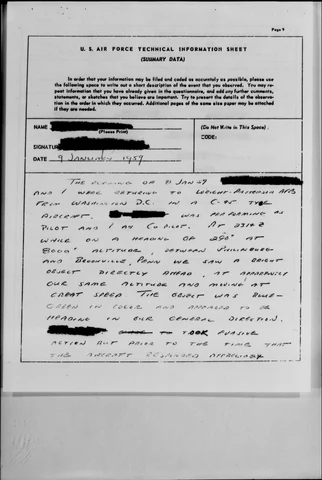 Page 9
U. S. AIR FORCE TECHNICAL INFORMATION SHEET
(SUMMARY DATA)
In order that your information may be filed and coded as accurately as possible, please use
the following space to write out a short description of the event that you observed. You may re-
peat information that you have already given in the questionnaire, and add any further comments,
statements, or sketches that you believe are important. Try to present the details of the observa-
tion in the order in which they occurred. Additional pages of the same size paper may be attached
if they are needed.
NAME
(Please Print)
SIGNATURE
DATE 9 JANUARY 1957
(Do Not Write in This Space)
CODE:
THE EVENING OF 8 JAN 57
AND I WERE RETURNING TO WRIGHT-PATTERSON AFB
FROM WASHINGTON D.C. IN A TYPE
AIRCRAFT. WAS PERFORMING AS
PILOT AND I AS CO PILOT. AT
WHILE ON A HEADING OF AT
8000' ALTITUDE, BETWEEN PHILIPSBURG
AND BROOKVILLE, PENN WE SAW A BRIGHT
OBJECT DIRECTLY AHEAD, AT APPARENTLY
OUR SAME ALTITUDE AND MOVING AT
GREAT SPEED THE OBJECT WAS BLUE-
GREEN IN COLOR AND APPEARED TO BE
HEADING IN OUR GENERAL DIRECTION.
TOOK EVASIVE
ACTION BUT PRIOR TO THE TIME THAT
THE AIRCRAFT RESPONDED APPRECIABLY